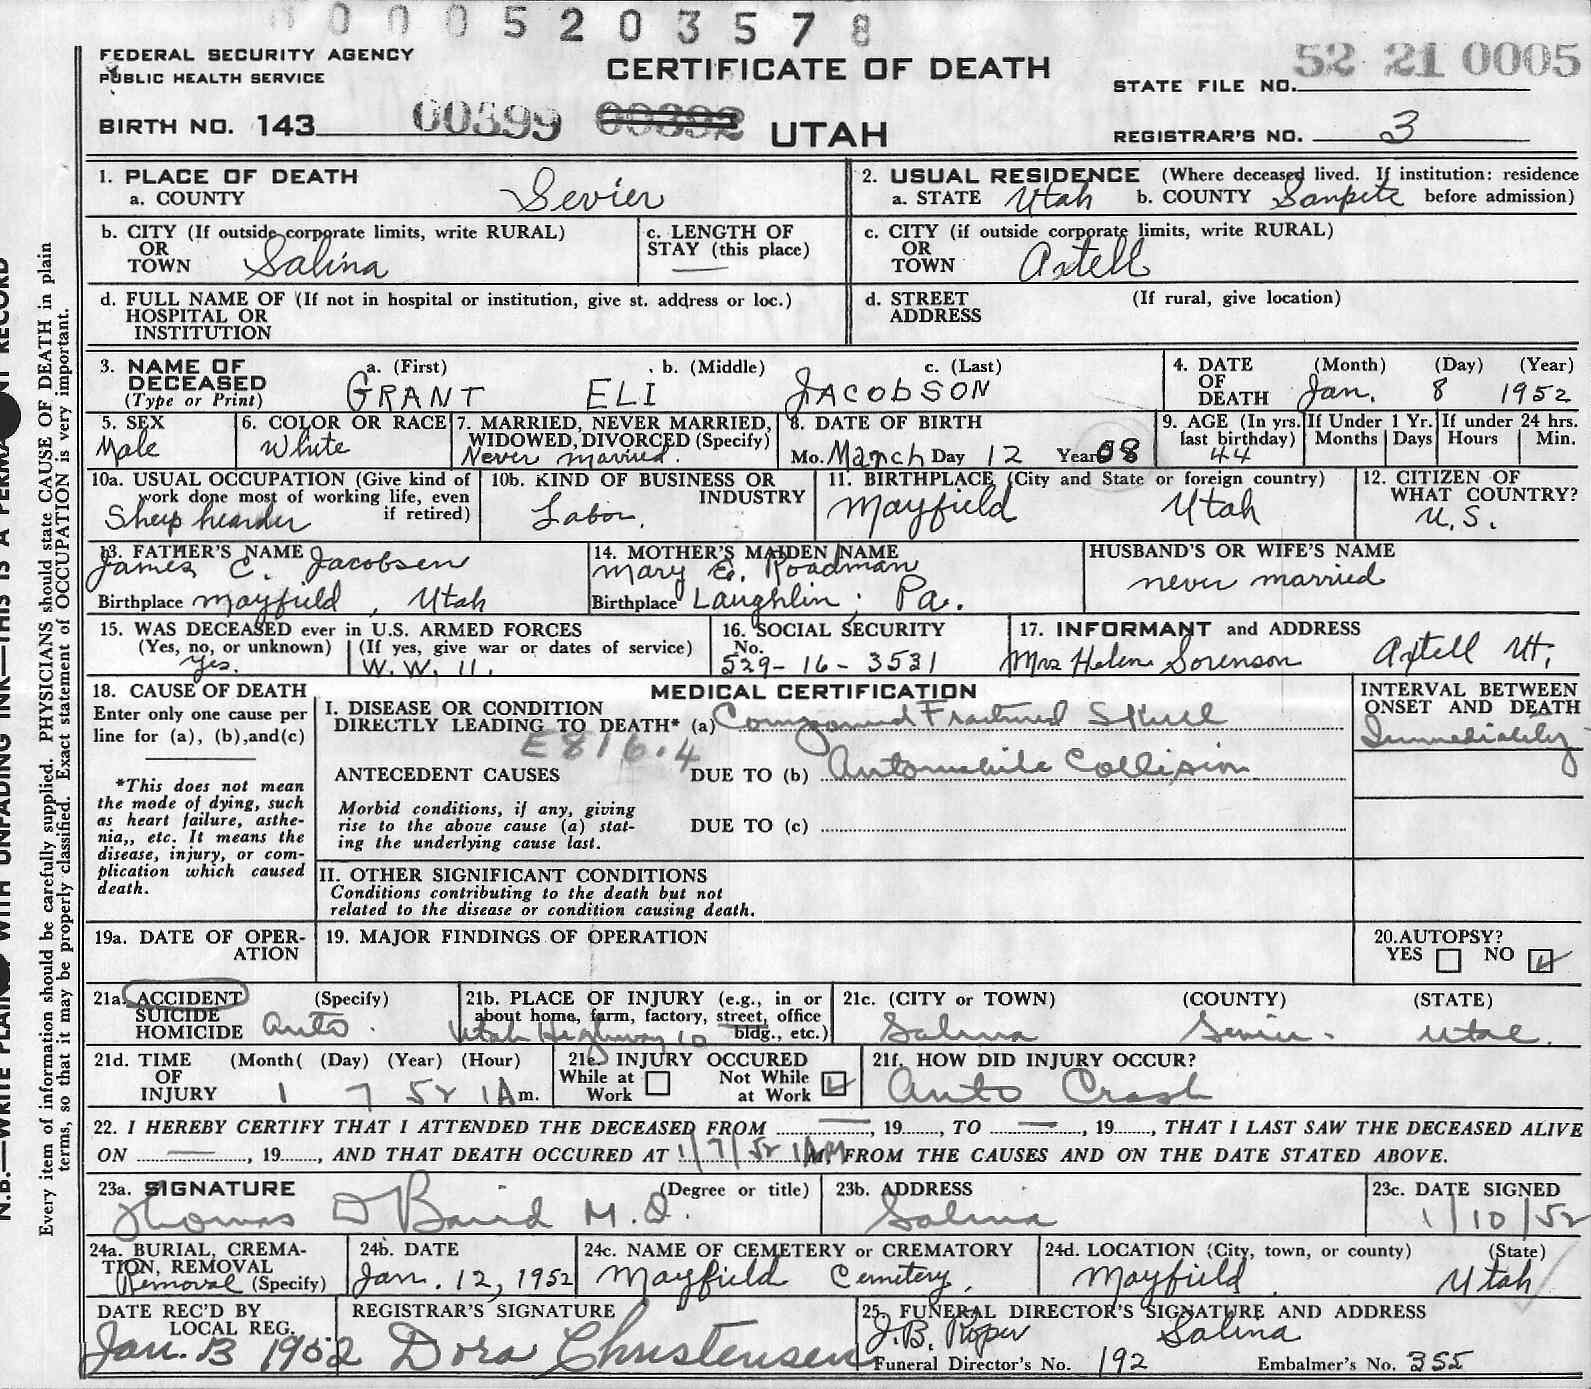 0005203578
FEDERAL SECURITY AGENCY
PUBLIC HEALTH SERVICE
CERTIFICATE OF DEATH
STATE FILE NO. 52 21 0005
BIRTH NO. 143 00399 00392 UTAH
REGISTRAR'S NO. 3
1. PLACE OF DEATH
a. COUNTY Sevier
2. USUAL RESIDENCE (Where deceased lived. If institution: residence
a. STATE Utah b. COUNTY Sanpete before admission)
b. CITY (If outside corporate limits, write RURAL)
OR
TOWN Salina
c. LENGTH OF
STAY (this place) —
c. CITY (if outside corporate limits, write RURAL)
OR
TOWN Axtell
d. FULL NAME OF (If not in hospital or institution, give st. address or loc.)
HOSPITAL OR
INSTITUTION
d. STREET (If rural, give location)
ADDRESS
3. NAME OF a. (First) b. (Middle) c. (Last)
DECEASED
(Type or Print) GRANT ELI JACOBSON
4. DATE (Month) (Day) (Year)
OF
DEATH Jan. 8 1952
5. SEX
Male
6. COLOR OR RACE
White
7. MARRIED, NEVER MARRIED,
WIDOWED, DIVORCED (Specify)
Never married.
8. DATE OF BIRTH
Mo. March Day 12 Year 08
9. AGE (In yrs. last birthday)
44
If Under 1 Yr.
Months Days
If under 24 hrs.
Hours Min.
10a. USUAL OCCUPATION (Give kind of
work done most of working life, even
if retired)
Sheep hearder
10b. KIND OF BUSINESS OR
INDUSTRY
Labor.
11. BIRTHPLACE (City and State or foreign country)
Mayfield Utah
12. CITIZEN OF
WHAT COUNTRY?
U.S.
13. FATHER'S NAME
James C. Jacobsen
Birthplace Mayfield, Utah
14. MOTHER'S MAIDEN NAME
Mary E. Roadman
Birthplace Laughlin, Pa.
HUSBAND'S OR WIFE'S NAME
never married
15. WAS DECEASED ever in U.S. ARMED FORCES
(Yes, no, or unknown) (If yes, give war or dates of service)
Yes. W.W. 11.
16. SOCIAL SECURITY
No.
529-16-3531
17. INFORMANT and ADDRESS
Mrs Helen Sorenson Axtell Ut.
18. CAUSE OF DEATH
Enter only one cause per
line for (a), (b), and (c)
*This does not mean
the mode of dying, such
as heart failure, asthe-
nia,, etc. It means the
disease, injury, or com-
plication which caused
death.
MEDICAL CERTIFICATION
I. DISEASE OR CONDITION
DIRECTLY LEADING TO DEATH* (a) Compound Fractured Skull
E816.4
ANTECEDENT CAUSES DUE TO (b) Automobile Collision
Morbid conditions, if any, giving
rise to the above cause (a) stat-
ing the underlying cause last.
DUE TO (c)
II. OTHER SIGNIFICANT CONDITIONS
Conditions contributing to the death but not
related to the disease or condition causing death.
INTERVAL BETWEEN
ONSET AND DEATH
Immediately
19a. DATE OF OPER-
ATION
19. MAJOR FINDINGS OF OPERATION
20. AUTOPSY?
YES NO
21a. ACCIDENT (Specify)
SUICIDE
HOMICIDE Auto.
21b. PLACE OF INJURY (e.g., in or
about home, farm, factory, street, office
bldg., etc.)
Utah Highway 10
21c. (CITY or TOWN) (COUNTY) (STATE)
Salina Sevier Utah.
21d. TIME (Month( (Day) (Year) (Hour)
OF
INJURY 1 7 52 1A m.
21e. INJURY OCCURED
While at Work Not While at Work
21f. HOW DID INJURY OCCUR?
Auto Crash
22. I HEREBY CERTIFY THAT I ATTENDED THE DECEASED FROM — , 19......, TO — , 19......, THAT I LAST SAW THE DECEASED ALIVE
ON — , 19......, AND THAT DEATH OCCURED AT 1/7/52 1AM M, FROM THE CAUSES AND ON THE DATE STATED ABOVE.
23a. SIGNATURE (Degree or title)
Thomas D Baird M.D.
23b. ADDRESS
Salina
23c. DATE SIGNED
1/10/52
24a. BURIAL, CREMA-
TION, REMOVAL
Removal (Specify)
24b. DATE
Jan. 12, 1952
24c. NAME OF CEMETERY or CREMATORY
Mayfield Cemetery.
24d. LOCATION (City, town, or county) (State)
Mayfield Utah
DATE REC'D BY
LOCAL REG.
Jan. 13 1952
REGISTRAR'S SIGNATURE
Dora Christensen
25. FUNERAL DIRECTOR'S SIGNATURE AND ADDRESS
J.B. Roper Salina
Funeral Director's No. 192 Embalmer's No. 355
Every item of information should be carefully supplied. PHYSICIANS should state CAUSE OF DEATH in plain
terms, so that it may be properly classified. Exact statement of OCCUPATION is very important.
N.B.—WRITE PLAIN WITH UNFADING INK—THIS IS A PERMA NT RECORD